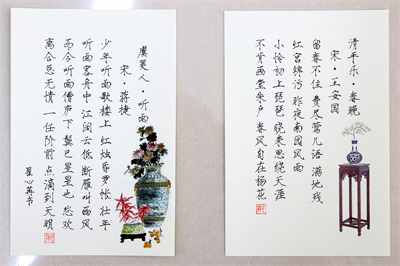 虞美人·听雨
宋·蒋捷
少年听雨歌楼上 红烛昏罗帐 壮年
听雨客舟中 江阔云低 断雁叫西风
而今听雨僧庐下 鬓已星星也 悲欢
离合总无情 一任阶前 点滴到天明
清平乐·春晚
宋·王安国
留春不住 费尽莺儿语 满地残
红宫锦污 昨夜南园风雨
小怜初上琵琶 晓来思绕天涯
不肯画堂朱户 春风自在杨花